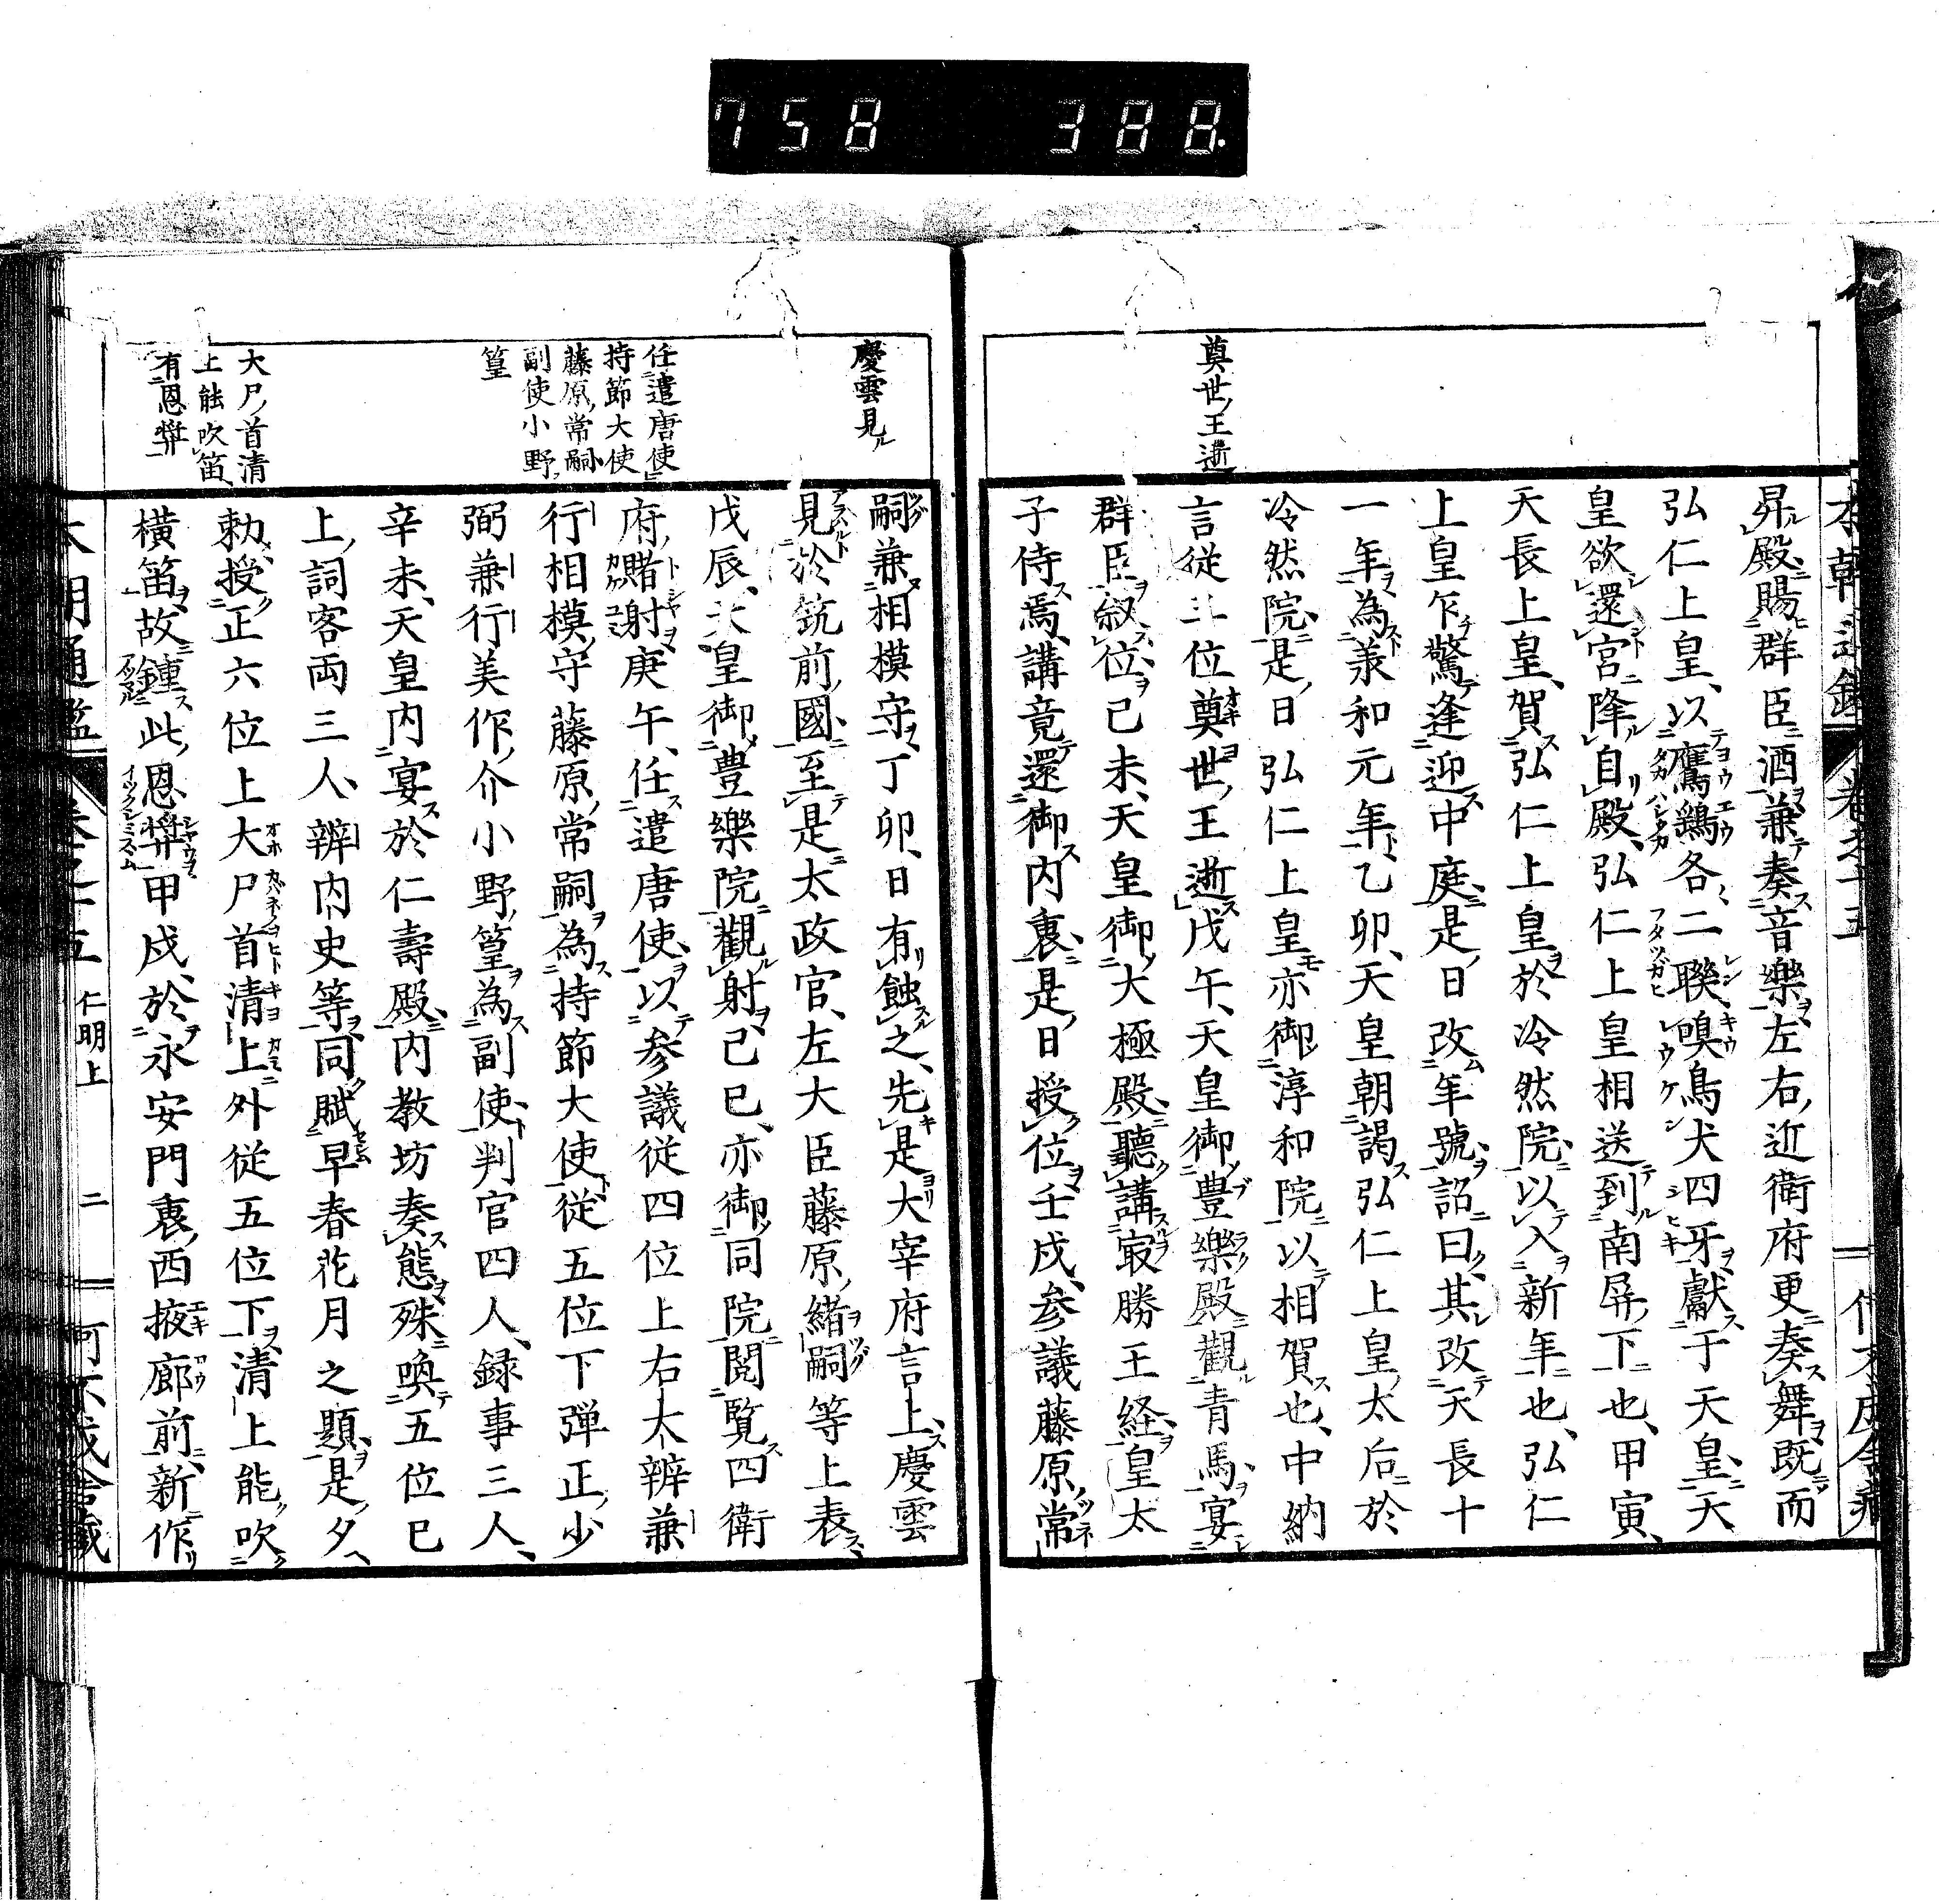 758 388.
奠世王逝
昇殿賜群臣酒兼奏音樂左右近衛府更奏舞既而
弘仁上皇以鷹鷂各二聯嗅鳥犬四牙獻于天皇天
皇欲還宮降自殿弘仁上皇相送到南屏下也甲寅
天長上皇賀弘仁上皇於冷然院以入新年也弘仁
上皇乍驚逢迎中庭是日改年號詔曰其改天長十
一年為承和元年乙卯天皇朝謁弘仁上皇太后於
冷然院是日弘仁上皇亦御淳和院以相賀也中納
言從三位奠世王逝戊午天皇御豊樂殿觀青馬宴
群臣叙位己未天皇御大極殿聽講㝡勝王経皇太
子侍焉講竟還御内裏是日授位壬戌参議藤原常
慶雲見
任遣唐使
持節大使
藤原常嗣
副使小野
篁
大尸首清
上能吹笛
有恩弊
嗣兼相模守丁卯日有蝕之先是大宰府言上慶雲
見於筑前國至是太政官左大臣藤原緒嗣等上表
戊辰天皇御豊樂院觀射己巳亦御同院閲覧四衛
府賭射庚午任遣唐使以参議従四位上右大辨兼
行相模守藤原常嗣為持節大使従五位下弾正少
弼兼行美作介小野篁為副使判官四人録事三人
辛未天皇内宴於仁壽殿内教坊奏態殊喚五位已
上詞客両三人辨内史等同賦早春花月之題是夕
勅授正六位上大尸首清上外従五位下清上能吹
横笛故鍾此恩弊甲戌於永安門裏西掖廊前新作
仁明上
二